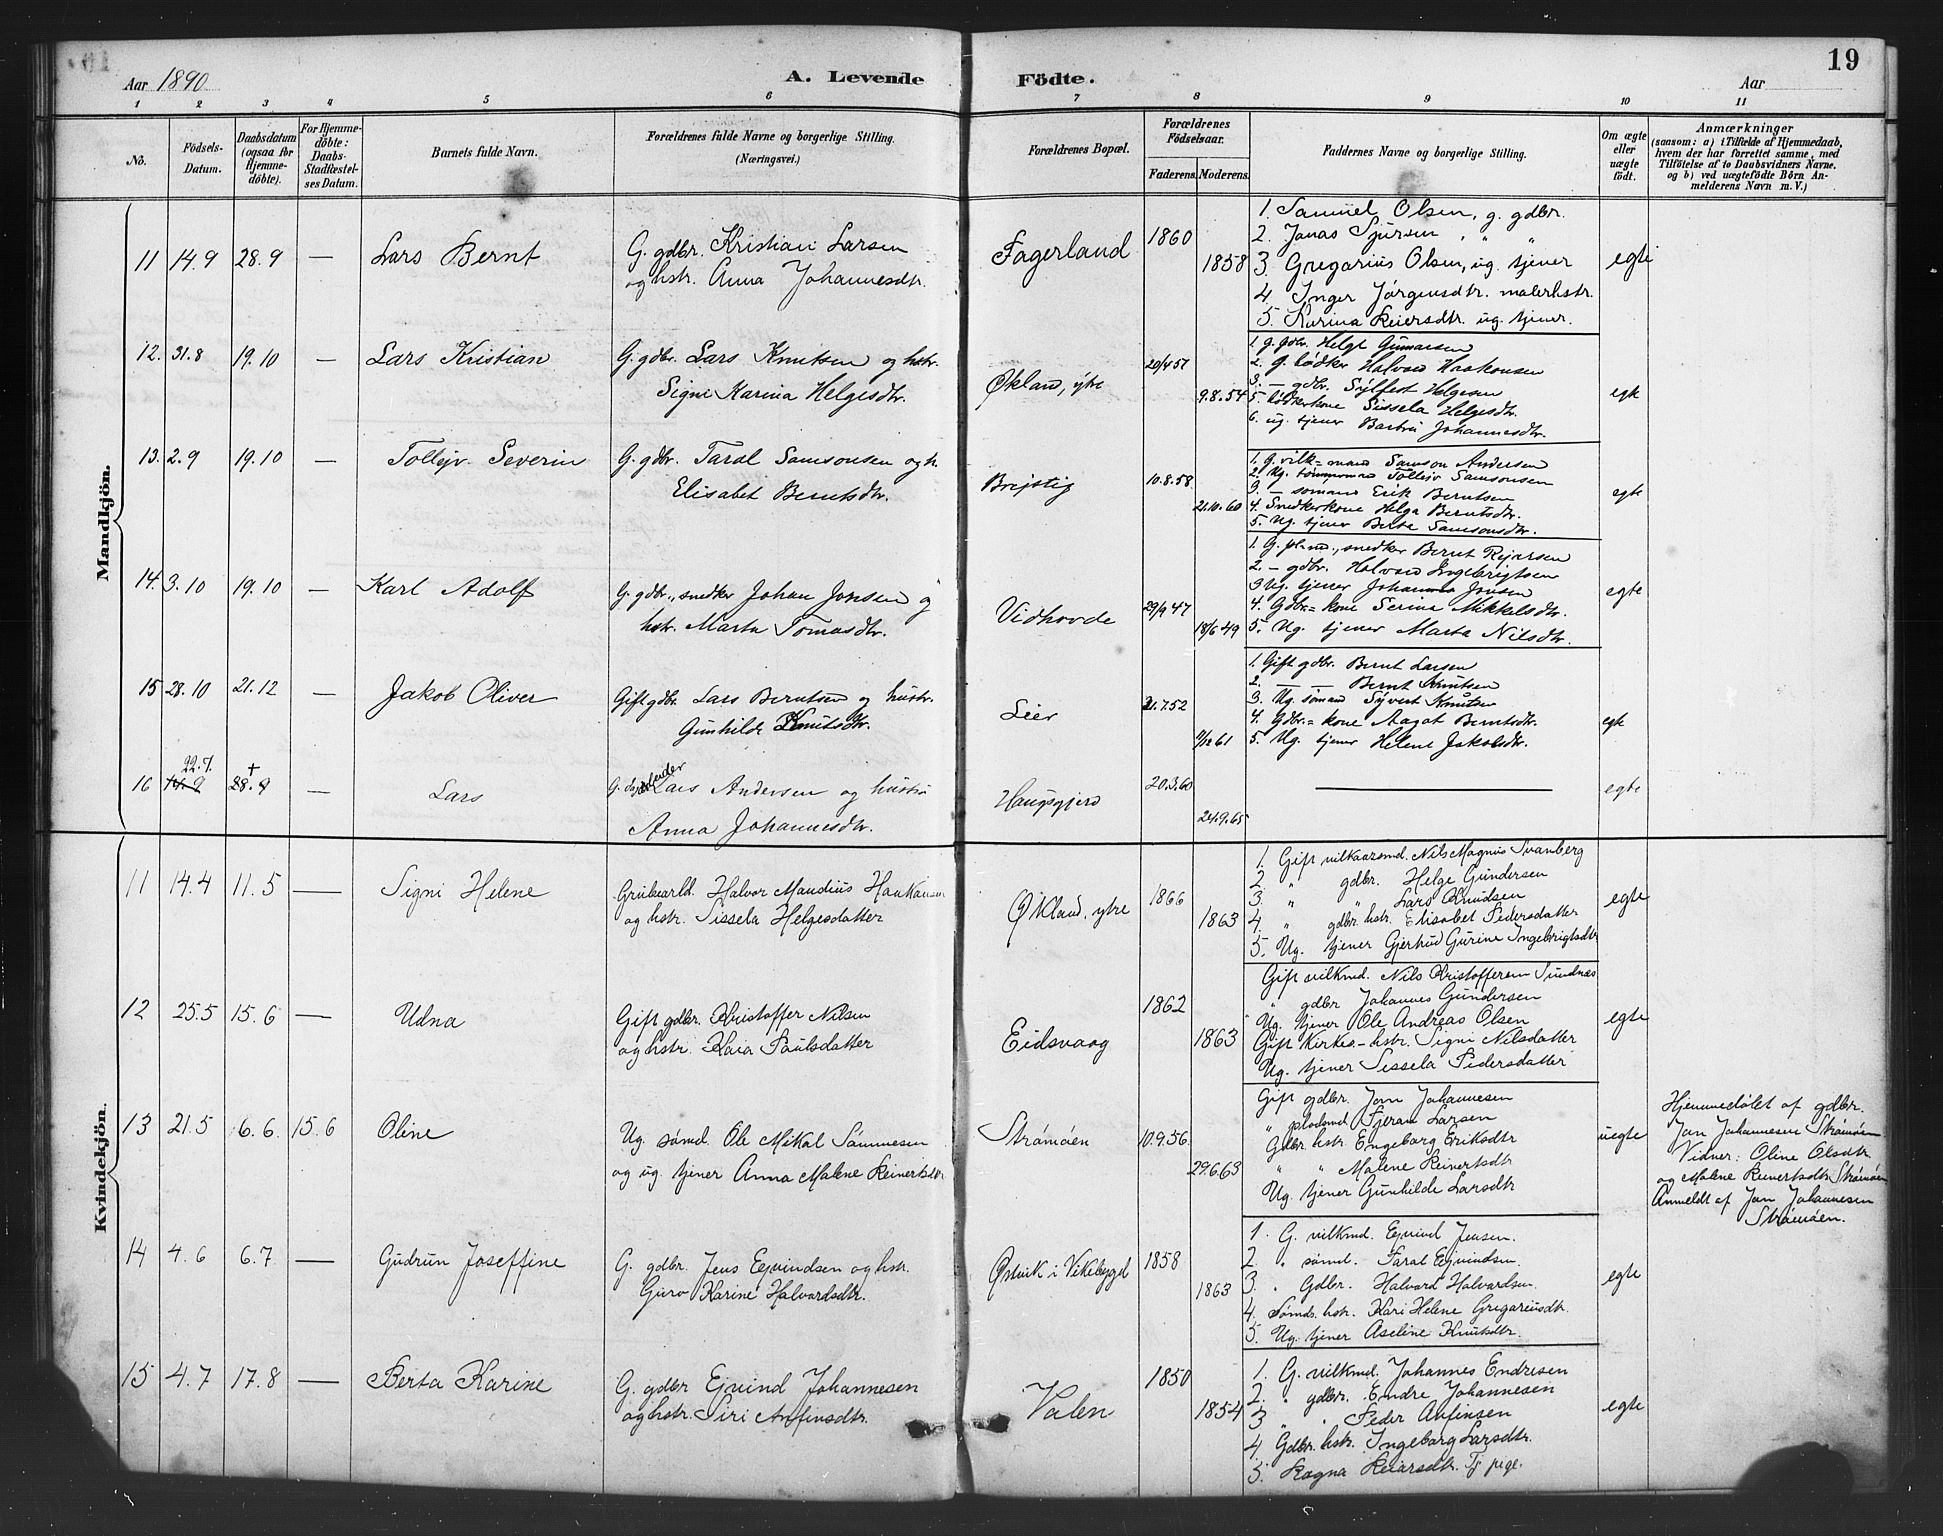 19
Aar 1890
A. Levende Födte.
Aar
1 2 3 4 5 6 7 8 9 10 11
No.
Födsels-Datum.
Daabsdatum (ogsaa for Hjemme-döbte).
For Hjemme-döbte: Daabs-Stadfæstelses Datum.
Barnets fulde Navn.
Forældrenes fulde Navne og borgerlige Stilling. (Næringsvei.)
Forældrenes Bopæl.
Forældrenes Födselsaar.
Faderens. Moderens.
Faddernes Navne og borgerlige Stilling.
Om ægte eller uægte födt.
Anmærkninger
(saasom: a) i Tilfælde af Hjemmedaab, hvem der har forrettet samme, med Tilföielse af to Daabsvidners Navne, og b) ved uægtefödte Börn Anmelderens Navn m. V.)
Mandkjön.
11 14.9 28.9 — Lars Bernt
G. gdbr. Kristian Larsen
og hstr. Anna Johannesdtr.
Fagerland 1860 1858
1. Samuel Olsen, g. gdbr.
2. Jonas Sjursen, " "
3. Gregarius Olsen, ug. tjener
4. Inger Jørgensdtr. malerhstr.
5. Karina Reiersdtr. ug. tjener.
egte
12. 31.8 19.10 — Lars Kristian
G. gdbr. Lars Knutsen og hstr.
Signi Karina Helgesdtr.
Økland, ytre 20/4 57 9.8.54
1. g. gdbr. Helge Gunnarsen
2. g. bødker Halvard Haakonsen
3. — gdbr. Sylfest Helgesen
5. bødkerkone Sissela Helgesdtr.
6. ug. tjener Barbru Johannesdtr.
egte
13. 2.9 19.10 — Tollejv Severin
G. gdbr. Taral Samsonsen og h.
Elisabet Berntsdtr.
Brejstig 10.8.58 21.10.60
1. G. vilk=mand Samson Andersen
2. Ug. Tollejv Samsonsen
3. — sømand Erik Berntsen
4. Snedkerkone Helga Berntsdtr.
5. Ug. tjener Berta Samsonsdtr.
egte
14. 3.10 19.10 — Karl Adolf
G. gdbr., snedker Johan Jonsen og
hstr. Marta Tomasdtr.
Vidhovde 29/9 47 18/6 49
1. G. snedker Bernt Rejarsen
2. — gdbr. Halvard Ingebrigtsen
3 Ug. tjener Johannes Jonsen
4. Gdbr.=kone Serina Mikkelsdtr.
5. Ug. tjener Marta Nilsdtr.
egte
15 28.10 21.12 — Jakob Oliver
Gift gdbr. Lars Berntsen og hustr.
Gunhilde Knutsdtr.
Leer 21.7.52 61
1. Gift gdbr. Bernt Larsen
2. — — Bernt Knutsen
3. Ug. sømand Syvert Knutsen
4. Gdbr.=kone Aagot Berntsdtr.
5. Ug. tjener Helene Jakobsdtr.
egte
22.9.
16 14.9 28.9 † — Lars
G. Lars Andersen og hustru
Anna Johannesdtr.
Haugsgjerd 20.3.60 24.9.65
egte
Kvindekjön.
11 14.4 11.5 — Signi Helene
Halvor Mandius Haakansen
og hstr. Sissela Helgesdatter
Økland, ytre 1866 1863
1. Gift vilkaarsmd. Nils Magnus Svanberg
2. " gdbr. Helge Gundersen
3. " " Lars Knudsen
4. " gdbr. hstr. Elisabet Pedersdatter
5. Ug. tjener Gjertrud Gurine Ingebrigtsdtr
egte
12 25.5 15.6 — Udna
Gift gdbr. Kristoffer Nilsen
og hstr. Kaia Paulsdatter
Eidsvaag 1862 1863
Gift vilkmd. Nils Kristoffersen Sundnæs
" gdbr Johannes Gundersen
Ug. tjener Ole Andreas Olsen
Gift Kirkes.-hstr. Signi Nilsdatter
Ug. tjener Sissela Pedersdatter
egte
13 21.5 6.6. 15.6 Oline
Ug. sømd. Ole Mikal Sammesen
og ug. tjener Anna Malene Reinertsdtr.
Strømøen 10.9.56. 29.6.63
Gift gdbr. Jan Johannesen
" pladsmd. Fjeran Larsen
Gdbr. hstr. Engeborg Eriksdtr
" " Malene Reinertsdtr
Ug. tjener Gunhilde Larsdtr
uegte
Hjemmedøbt af gdbr.
Jan Johannesen Strømøen
Vidner: Oline Olsdtr
og Malene Reinertsdtr. Strømøen
Anmeldt af Jan Johannesen
Strømøen.
14 4.6 6.7 — Gudrun Joseffine
G. gdbr. Jens Ejvindsen og hstr.
Guro Karine Halvardsdtr.
Østvik i Vikebygd 1858 1863
1. G. vilkmd. Ejvind Jensen.
2. " sømd. Taral Ejvindsen.
3. " Gdbr. Halvard Halvardsen.
4. Sømds. hstr. Kari Helene Gregariusdtr.
5. Ug. tjener Aseline Knutsdtr.
egte
15 4.7 17.8 — Berta Karine
G. gdbr Ejvind Johannesen
og hstr. Siri Anfinsdtr.
Valen 1850 1854
1. G. vilkmd. Johannes Endresen
2. " gdbr. Endre Johannesen
3 " " Peder Anfinsen
4. Gdbr. hstr. Ingeborg Larsdtr.
5. Ragna Reiarsdtr. Tj. pige.
egte